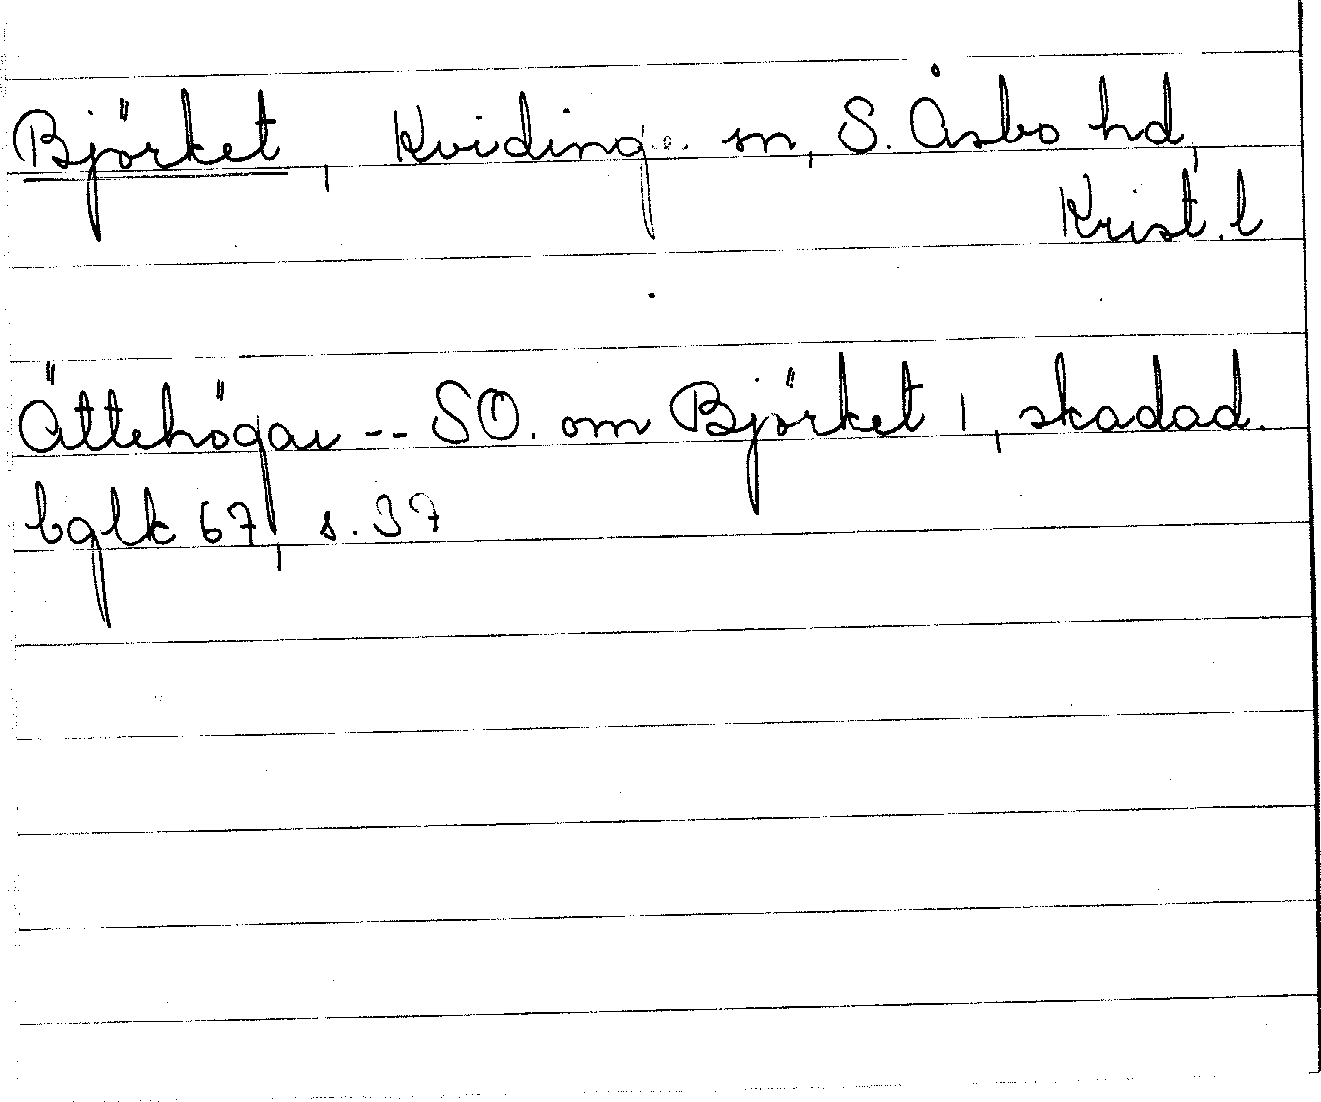 Björket, Kviding. sn, S. Åsbo hd,
Krist. l
Ättehögar -- SO. om Björket 1, skadad.
bglk 67, s. 37